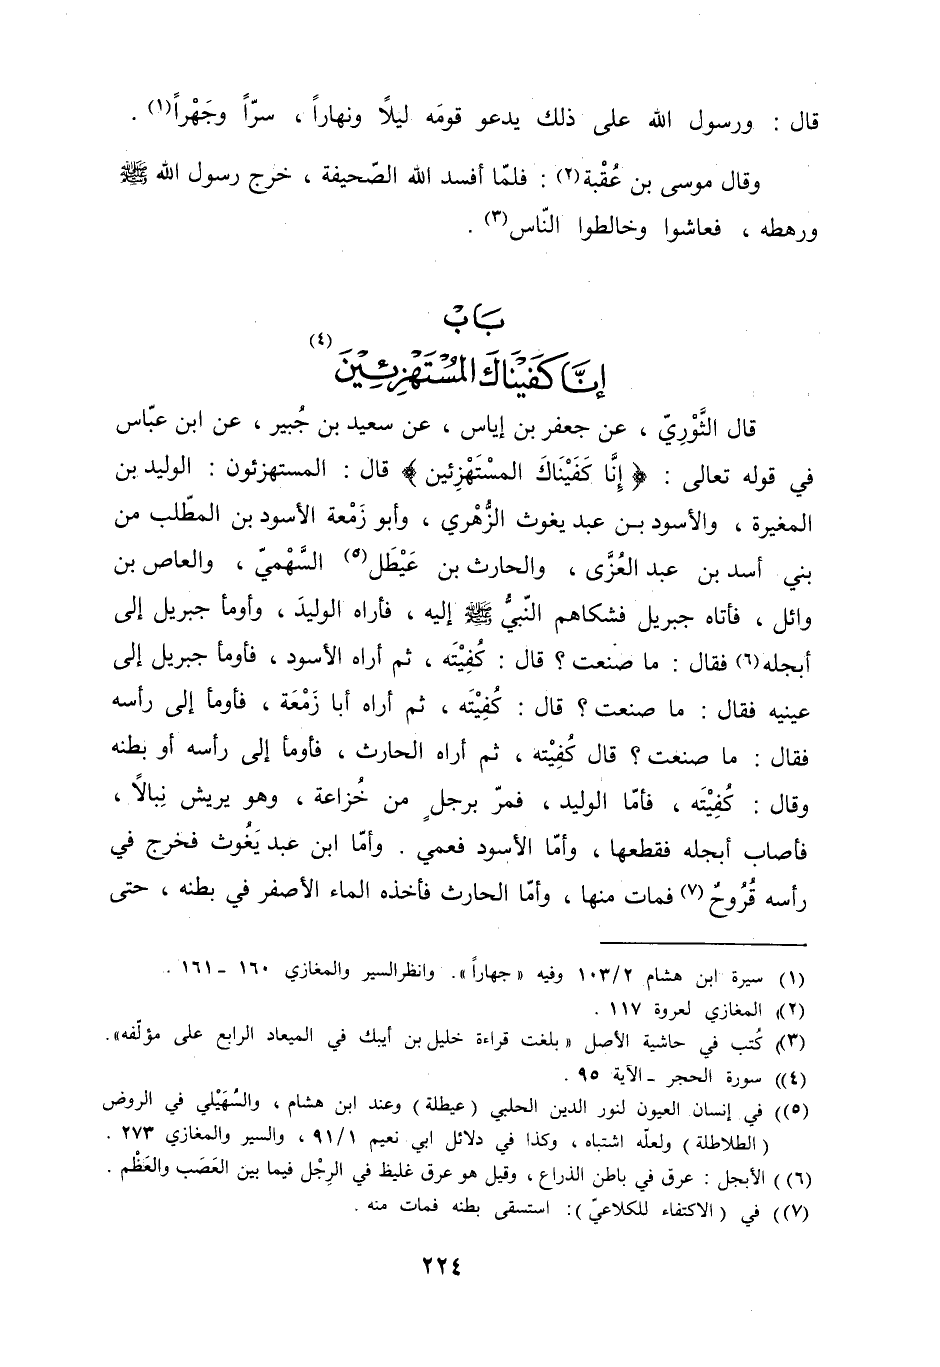 قال : ورسول الله على ذلك يدعو قومَه ليلًا ونهاراً ، سرّاً وجَهْراً(١) .
وقال موسى بن عُقْبة(٢) : فلمّا أفسد الله الصّحيفة ، خرج رسول الله ﷺ
ورهطه ، فعاشوا وخالطوا النّاس(٣) .
بَابْ
إنَّا كَفَيْنَاكَ المُسْتَهْزِئِينَ (٤)
قال الثَّوْرِيّ ، عن جعفر بن إياس ، عن سعيد بن جُبير ، عن ابن عبّاس
في قوله تعالى : ﴿ إِنَّا كَفَيْنَاكَ المسْتَهْزِئين ﴾ قال : المستهزئون : الوليد بن
المغيرة ، والأسود بـن عبد يغوث الزُّهْري ، وأبو زَمْعة الأسود بن المطّلب من
بني أسد بن عبد العُزَّى ، والحارث بن عَيْطَل(٥) السَّهْميّ ، والعاص بن
وائل ، فأتاه جبريل فشكاهم النّبيُّ ﷺ إليه ، فأراه الوليدَ ، وأومأ جبريل إلى
أبجله(٦) فقال : ما صَنعت ؟ قال : كُفِيْتَه ، ثم أراه الأسود ، فأومأ جبريل إلى
عينيه فقال : ما صنعت ؟ قال : كُفِيْتَه ، ثم أراه أبا زَمْعَة ، فأومأ إلى رأسه
فقال : ما صنعت ؟ قال كُفِيْته ، ثم أراه الحارث ، فأومأ إلى رأسه أو بطنه
وقال : كُفِيْتَه ، فأمّا الوليد ، فمرّ برجلٍ من خُزاعة ، وهو يريش نِبالاً ،
فأصاب أبجله فقطعها ، وأمّا الأسود فعمي . وأمّا ابن عبد يَغُوث فخرج في
رأسه قُرُوحٌ (٧) فمات منها ، وأمّا الحارث فأخذه الماء الأصفر في بطنه ، حتى
(١) سيرة ابن هشام ١٠٣/٢ وفيه « جهاراً ». وانظرالسير والمغازي ١٦٠ ـ ١٦١ .
(٢) المغازي لعروة ١١٧ .
(٣) كُتب في حاشية الأصل « بلغت قراءة خليل بن أيبك في الميعاد الرابع على مؤلّفه».
(٤) سورة الحجر ـ الآية ٩٥ .
(٥) في إنسان العيون لنور الدين الحلبي ( عيطلة ) وعند ابن هشام ، والسُهَيْلي في الروض
( الطلاطلة ) ولعلّه اشتباه ، وكذا في دلائل ابي نعيم ٩١/١ ، والسير والمغازي ٢٧٣ .
(٦) الأبجل : عرق في باطن الذراع ، وقيل هو عرق غليظ في الرِجْل فيما بين العَصَب والعَظْم .
(٧) في ( الاكتفاء للكلاعيّ ): استسقى بطنه فمات منه .
٢٢٤